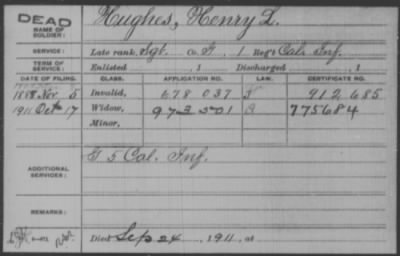 DEAD
NAME OF SOLDIER: Hughes, Henry L.
SERVICE: Late rank, Sgt. Co. G, 1 Reg't Cal. Inf.
TERM OF SERVICE: Enlisted , 1 Discharged , 1
DATE OF FILING. CLASS. APPLICATION NO. LAW. CERTIFICATE NO.
1888 Nov 5 Invalid, 678 037 912 685
1911 Oct 17 Widow, 973 501 775684
Minor,
ADDITIONAL SERVICES: G 5 Cal. Inf.
REMARKS:
Died Sep 24, 1911, at